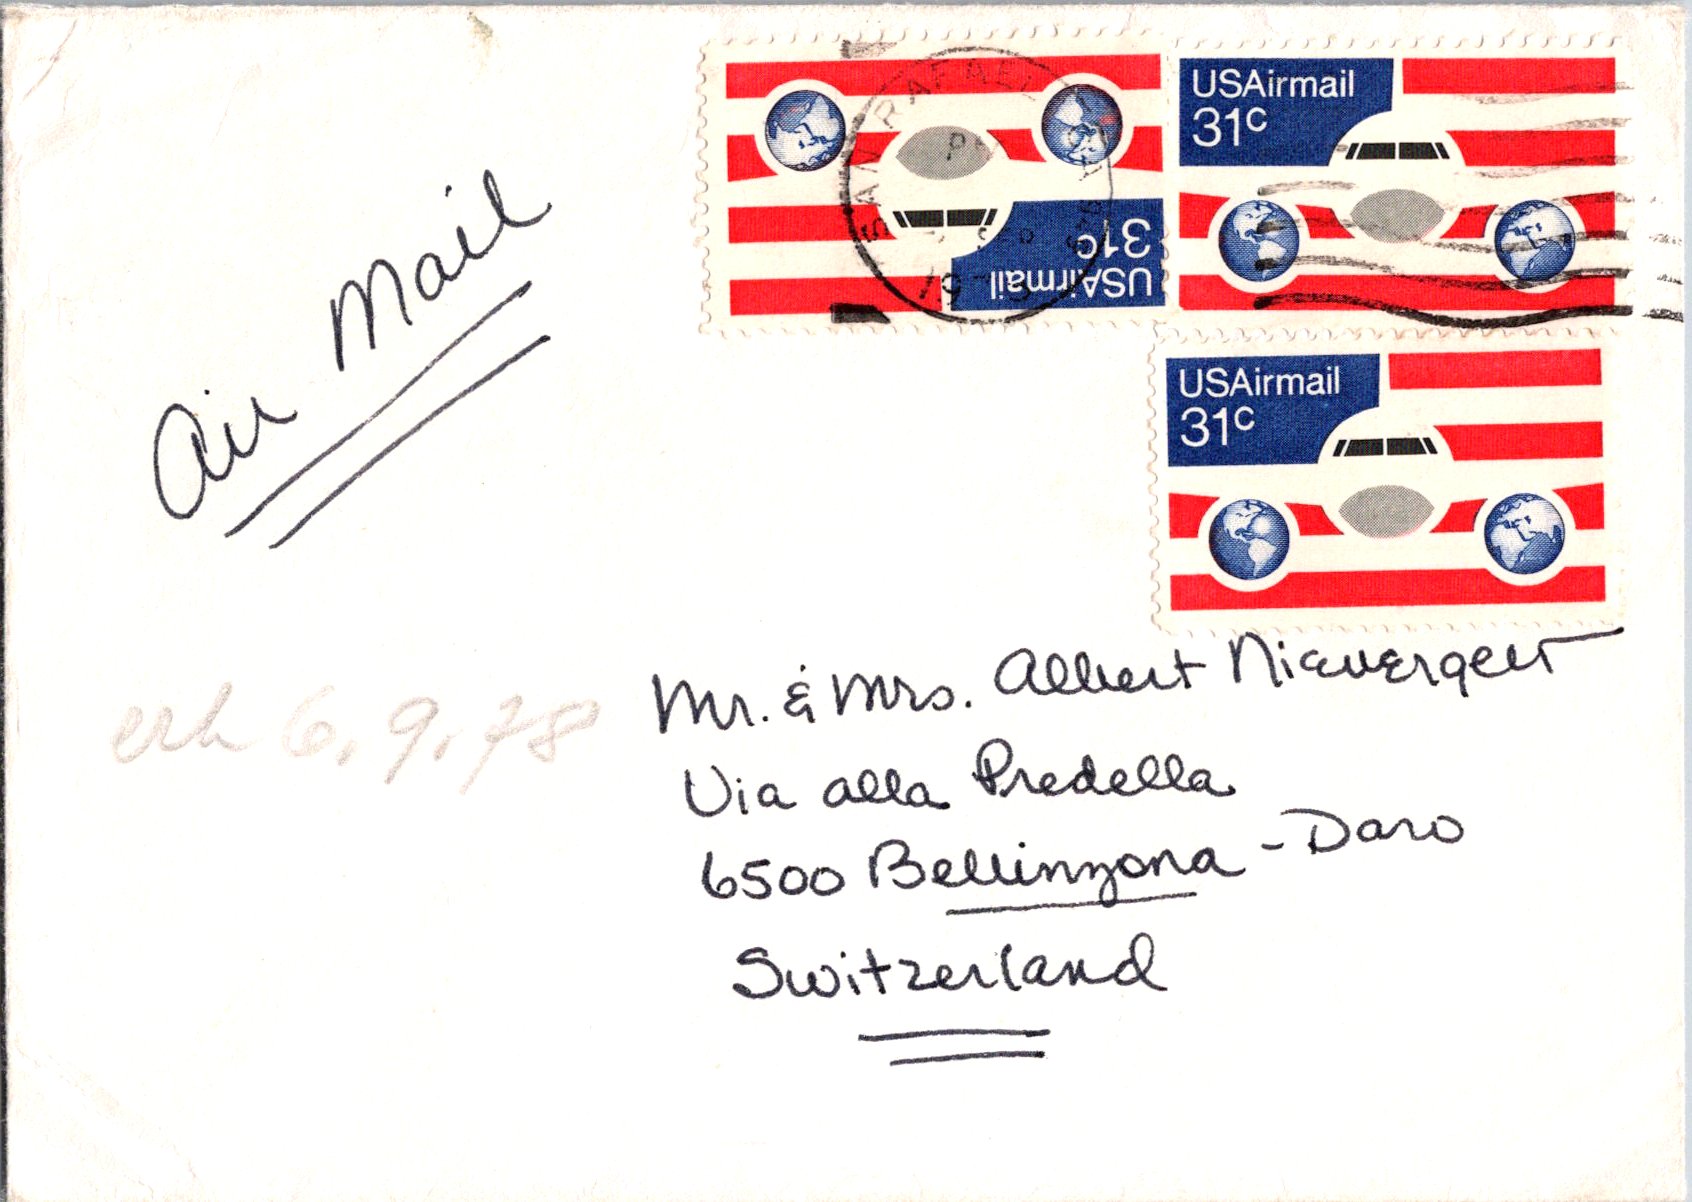 SAN RAFAEL, CA
PM
SEP
1978
USAirmail
31c
USAirmail
31c
USAirmail
31c
Air Mail
erh 6.9.78
Mr. & Mrs. Albert Nievergelt
Via alla Predella
6500 Bellinzona - Daro
Switzerland